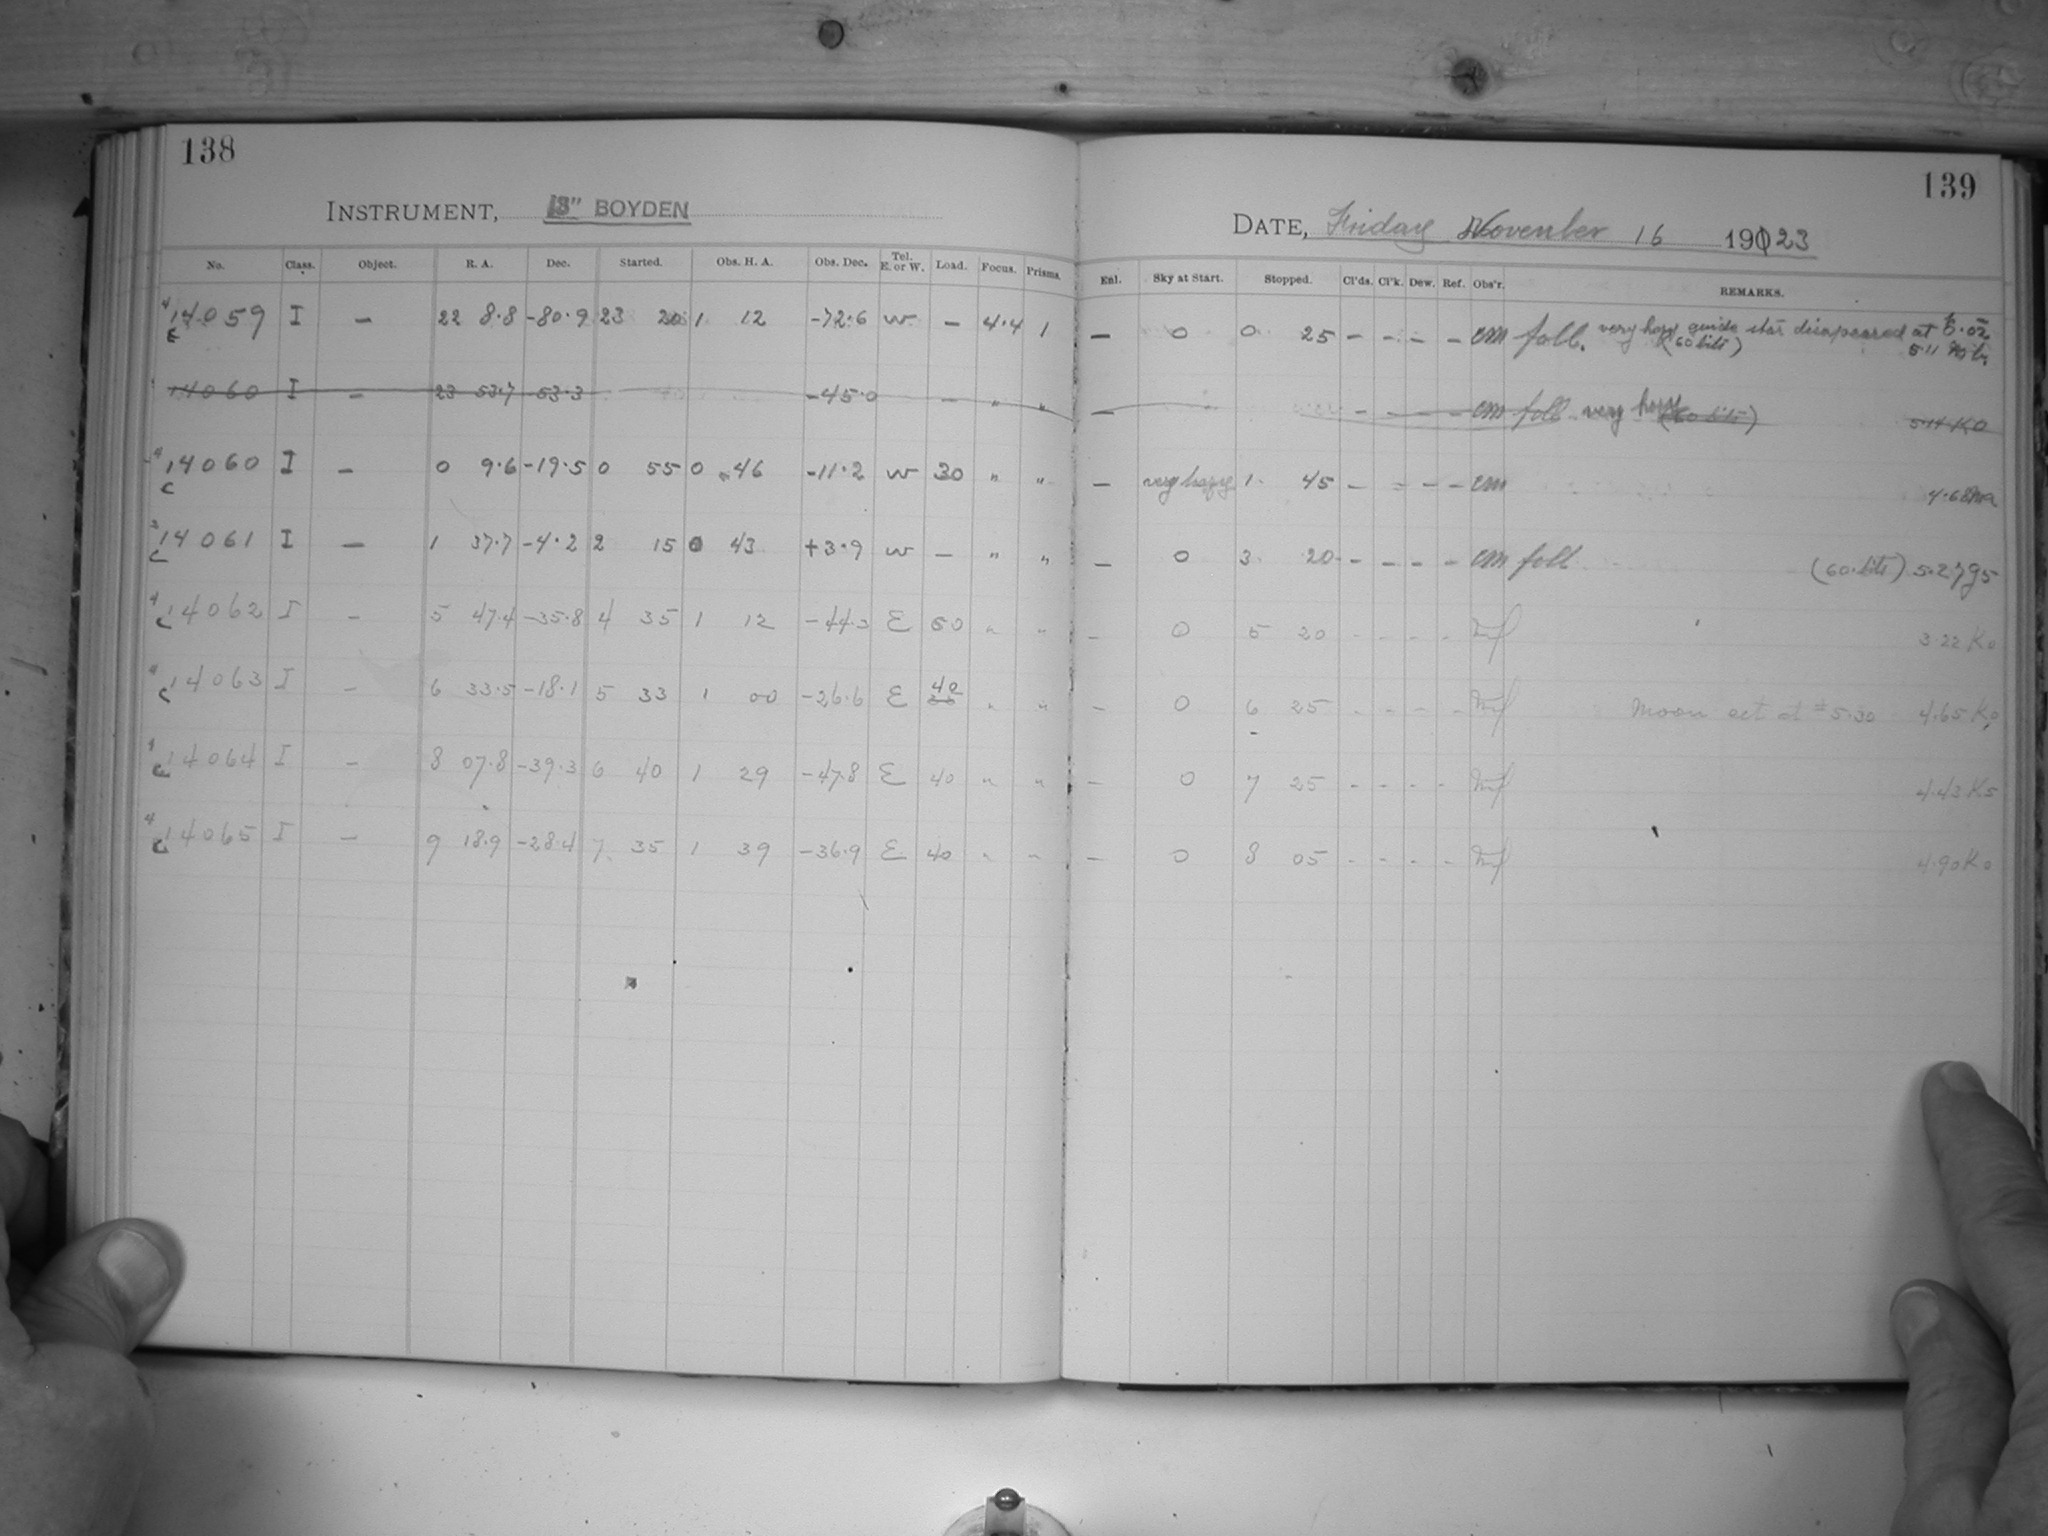 138
INSTRUMENT, 13" BOYDEN
No. Class. Object. R. A. Dec. Started. Obs. H. A. Obs. Dec. Tel. E. or W. Load. Focus. Prisms.
14059 I — 22 8.8 -80.9 23 20 1 12 -72.6 W — 4.4 1
14060 I — 23 53.7 -53.3 -45.0 — " "
14060 I — 0 9.6 -19.5 0 55 0 46 -11.2 W 30 " "
14061 I — 1 37.7 -4.2 2 15 0 43 +3.9 W — " "
14062 I — 5 47.4 -35.8 4 35 1 12 -44.3 E 60 " "
14063 I — 6 33.5 -18.1 5 33 1 00 -26.6 E 40 " "
14064 I — 8 07.8 -39.3 6 40 1 29 -47.8 E 40 " "
14065 I — 9 18.9 -28.4 7 35 1 39 -36.9 E 40 " "
139
DATE, Friday November 16 1923
Enl. Sky at Start. Stopped. Cl'ds. Cl'k. Dew. Ref. Obs'r. REMARKS.
— 0 0 25 — — — — em foll. very hazy guide star disapeared at
(60 bits) 5.11
— — — — — em foll. very hazy (60 bits) 5.14 K0
— very hazy 1 45 — — — — em 4.68 Ma
— 0 3 20 — — — — em foll (60 bits) 5.27 g5
— 0 5 20 - - - - 3.22 K0
— 0 6 25 - - - - Moon set at 5.30 4.65 K0
— 0 7 25 - - - - 4.43 K5
— 0 8 05 - - - - 4.90 K0